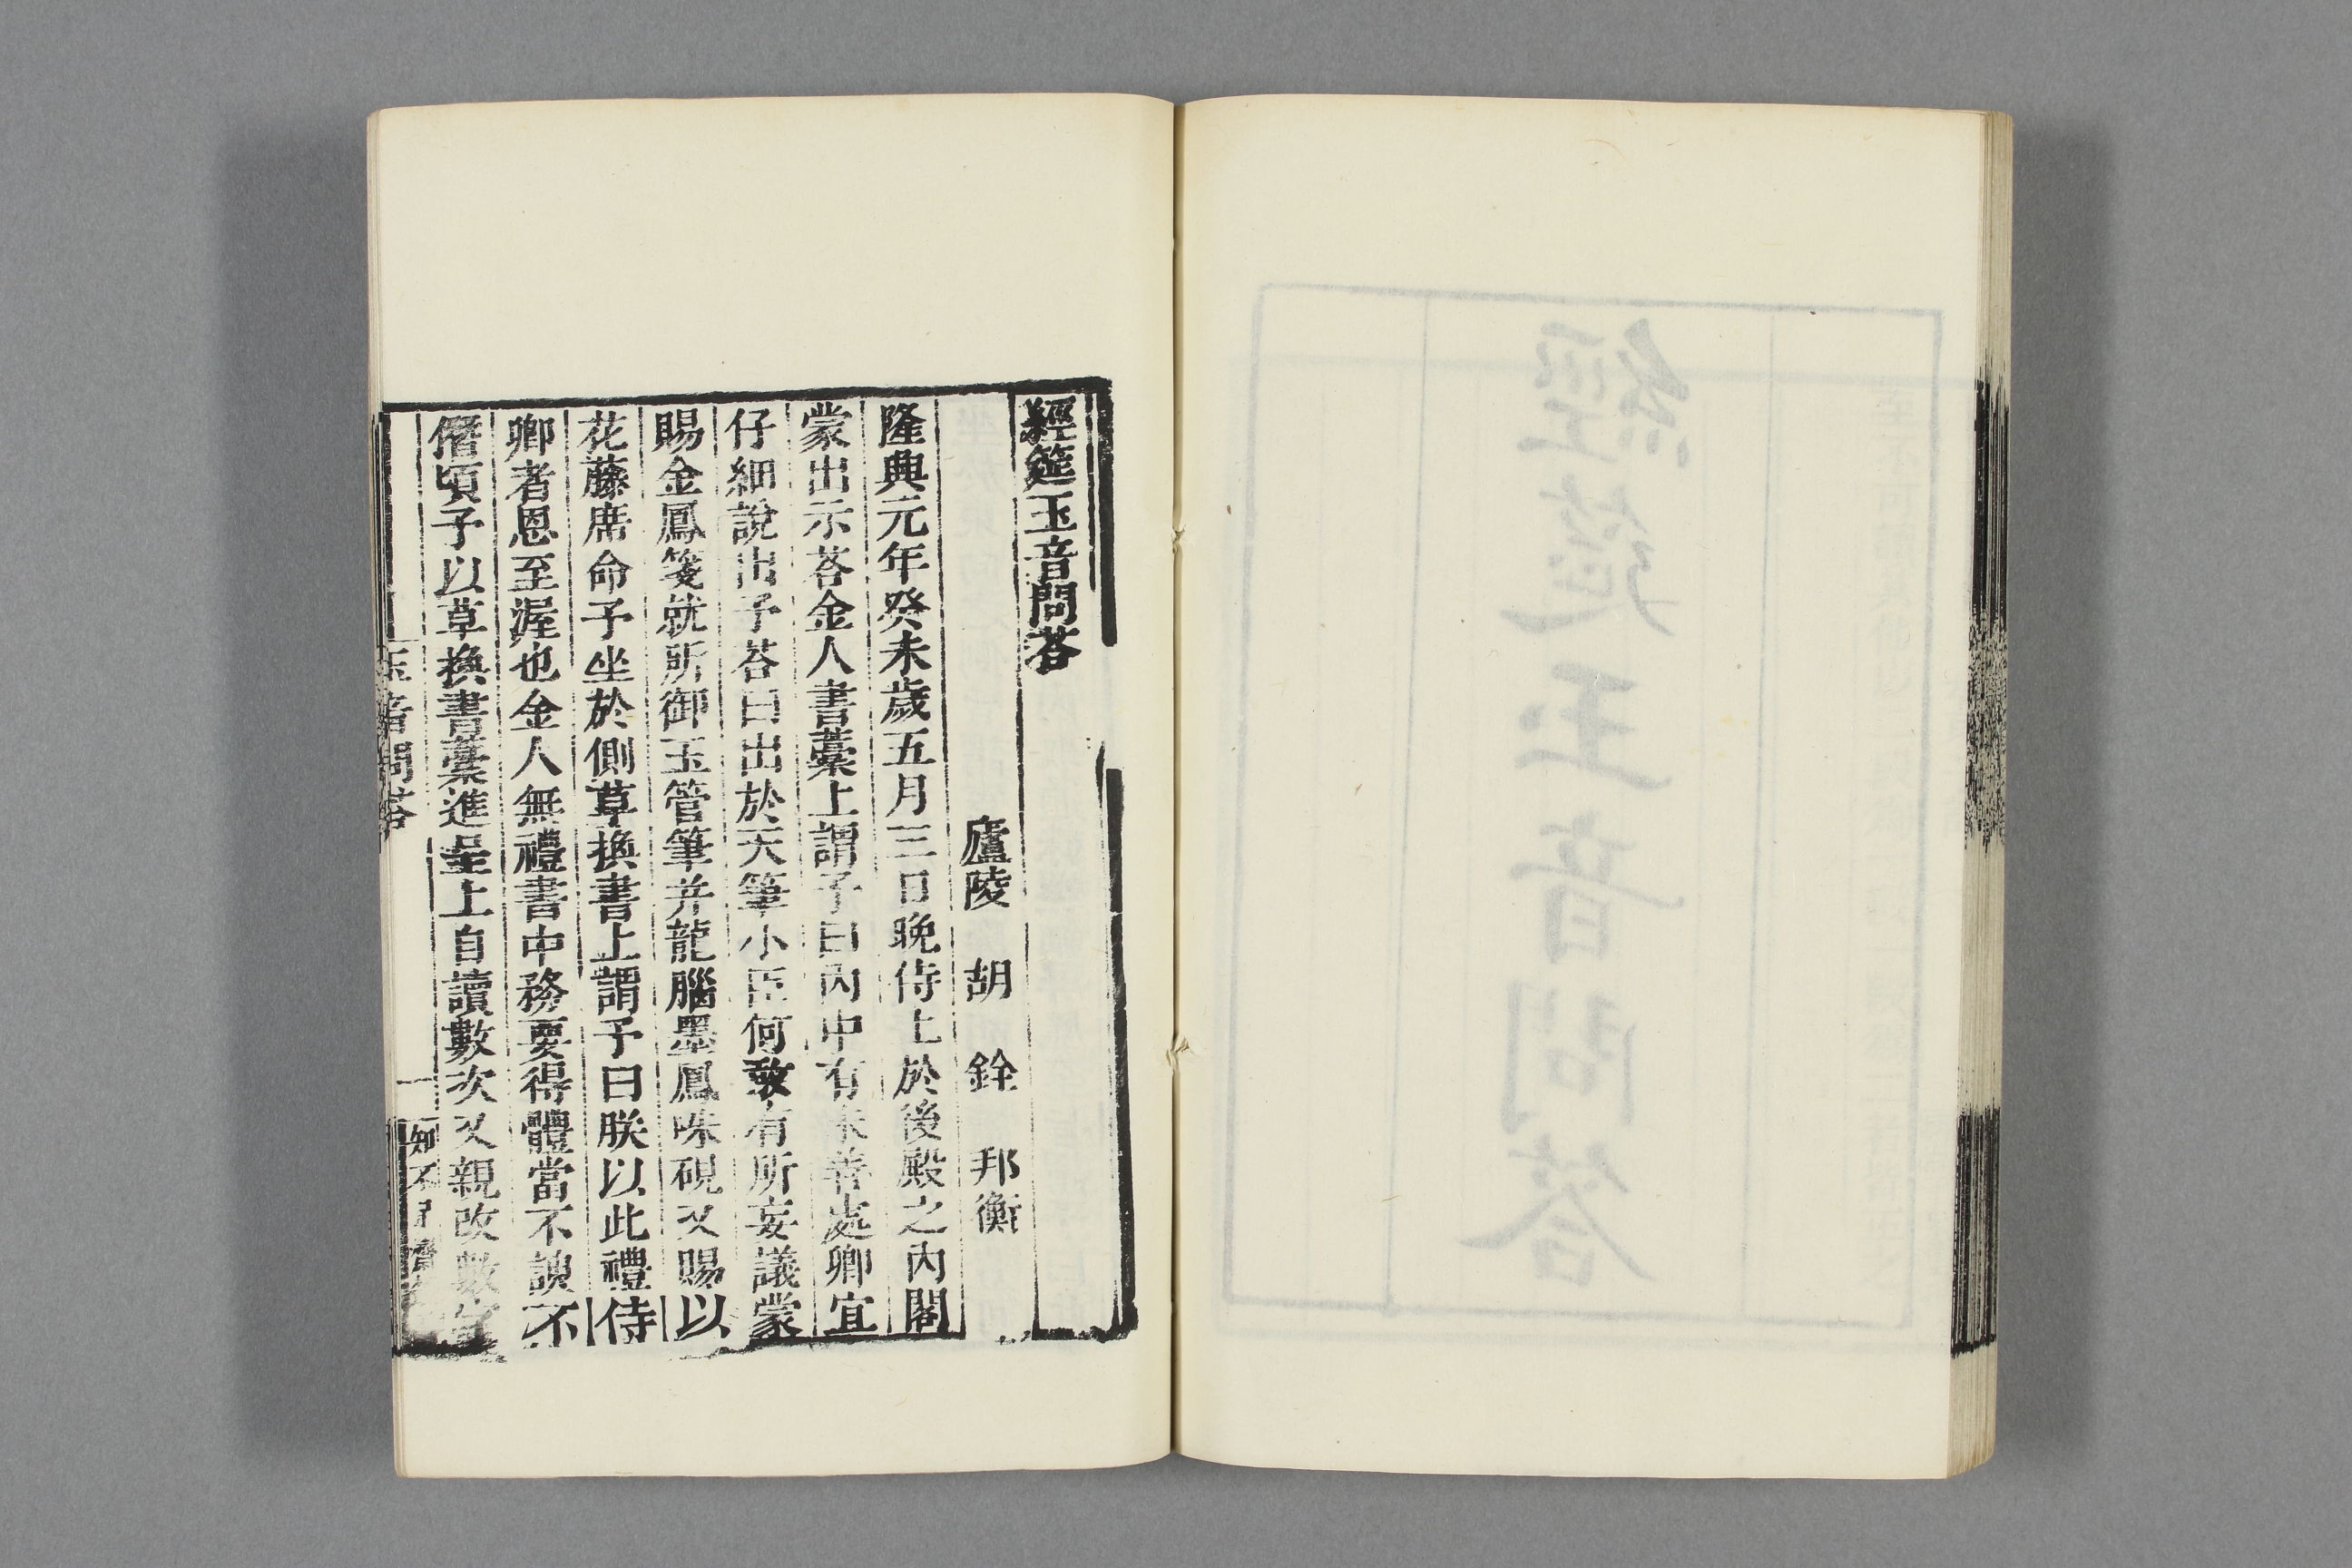 經筵玉音問荅
廬陵 胡 銓 邦衡
隆興元年癸未歲五月三日晚侍上於後殿之內閣
蒙出示荅金人書藁上謂予曰內中有未善處卿宜
仔細說出予荅曰出於天筆小臣何敢有所妄議蒙
賜金鳳箋就所御玉管筆并龍腦墨鳳咮硯又賜以
花藤席命予坐於側草換書上謂予曰朕以此禮侍
卿者恩至渥也金人無禮書中務要得體當不諛不
僭頃予以草換書藁進呈上自讀數次又親改數字
玉音問荅
一
知不足齋
經筵玉音問答